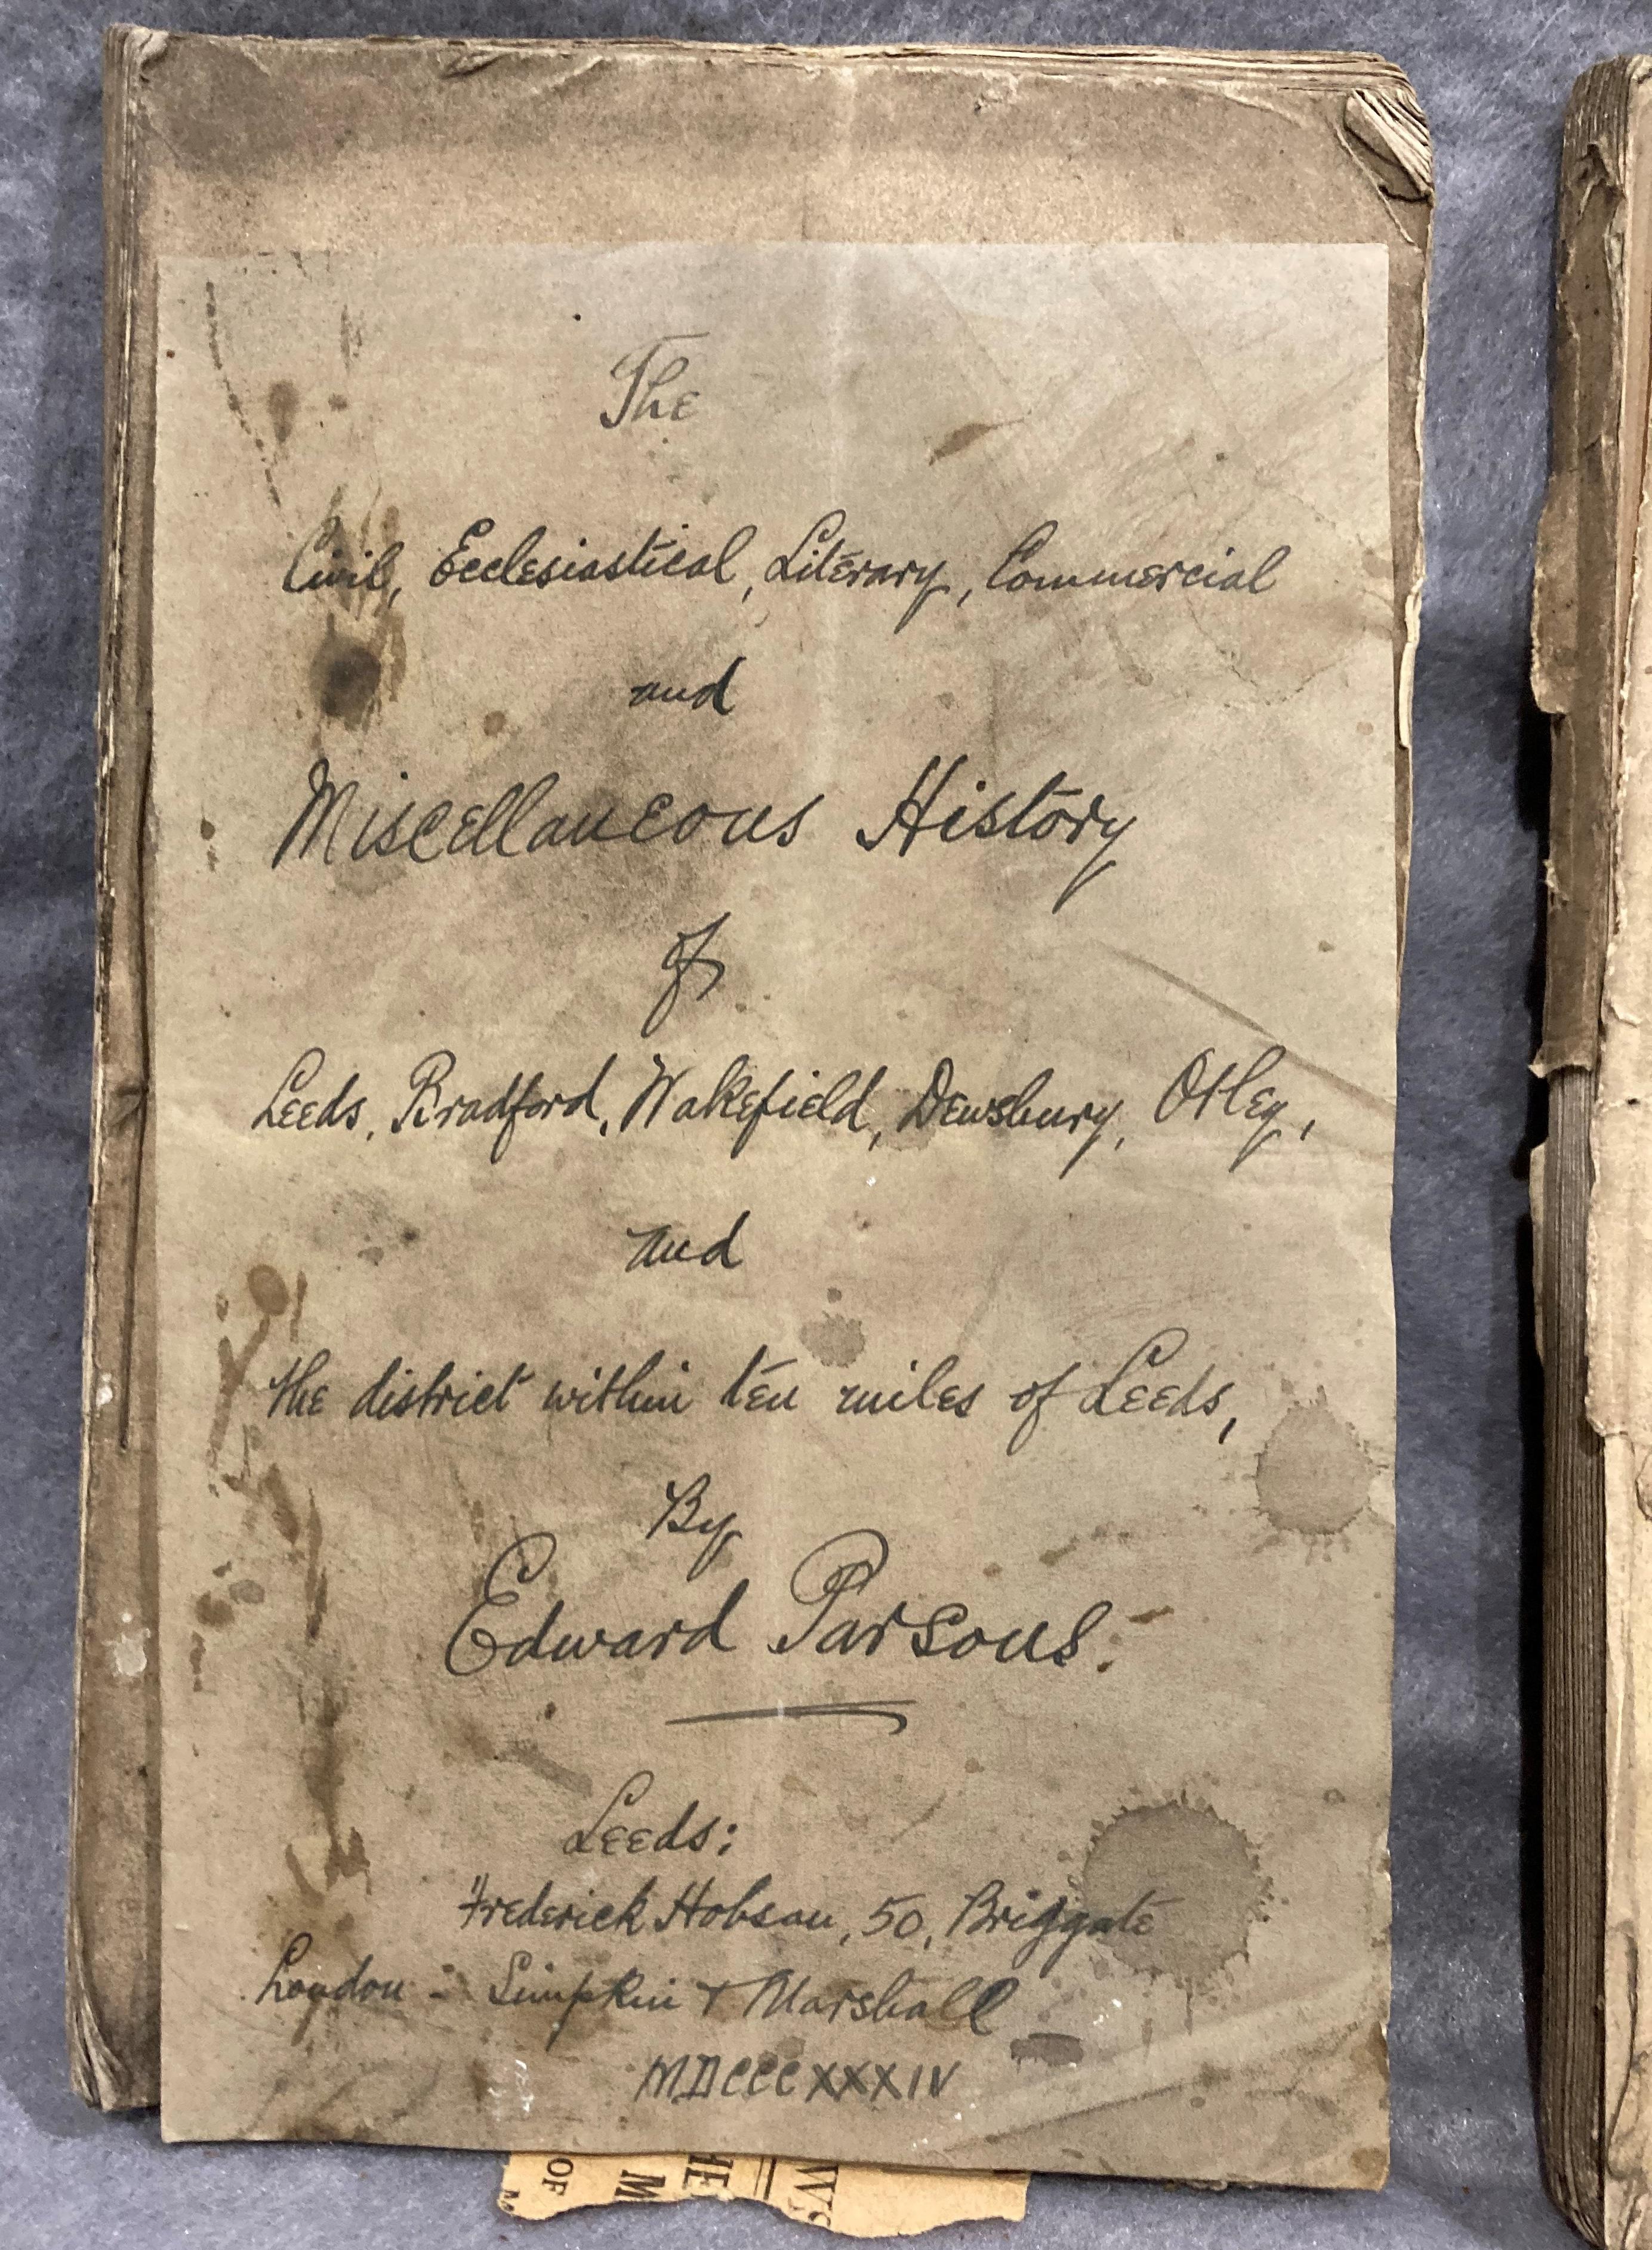 The
Civil, Ecclesiastical, Literary, Commercial
and
Miscellaneous History
of
Leeds, Bradford, Wakefield, Dewsbury, Otley,
and
the district within ten miles of Leeds,
By
Edward Parsons.
Leeds:
Frederick Hobson, 50, Briggate
London - Simpkin + Marshall
MDCCCXXXIV
OF
M
HE